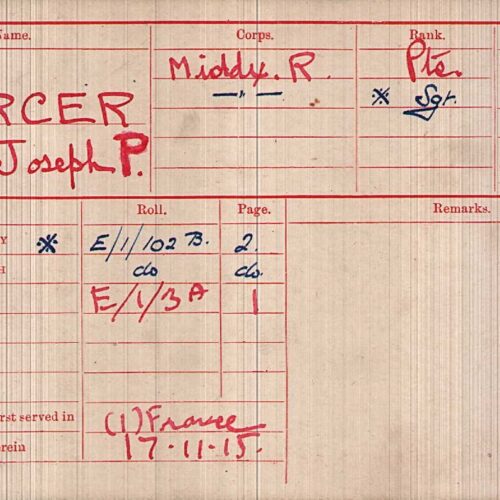 Name. Corps. Rank.
RCER Middx. R. Pte.
Joseph P. — " — ※ Sgr.
Roll. Page. Remarks.
Y ※ E/1/102 B. 2.
H do do.
E/1/3 A 1
rst served in (1) France
rein 17-11-15.